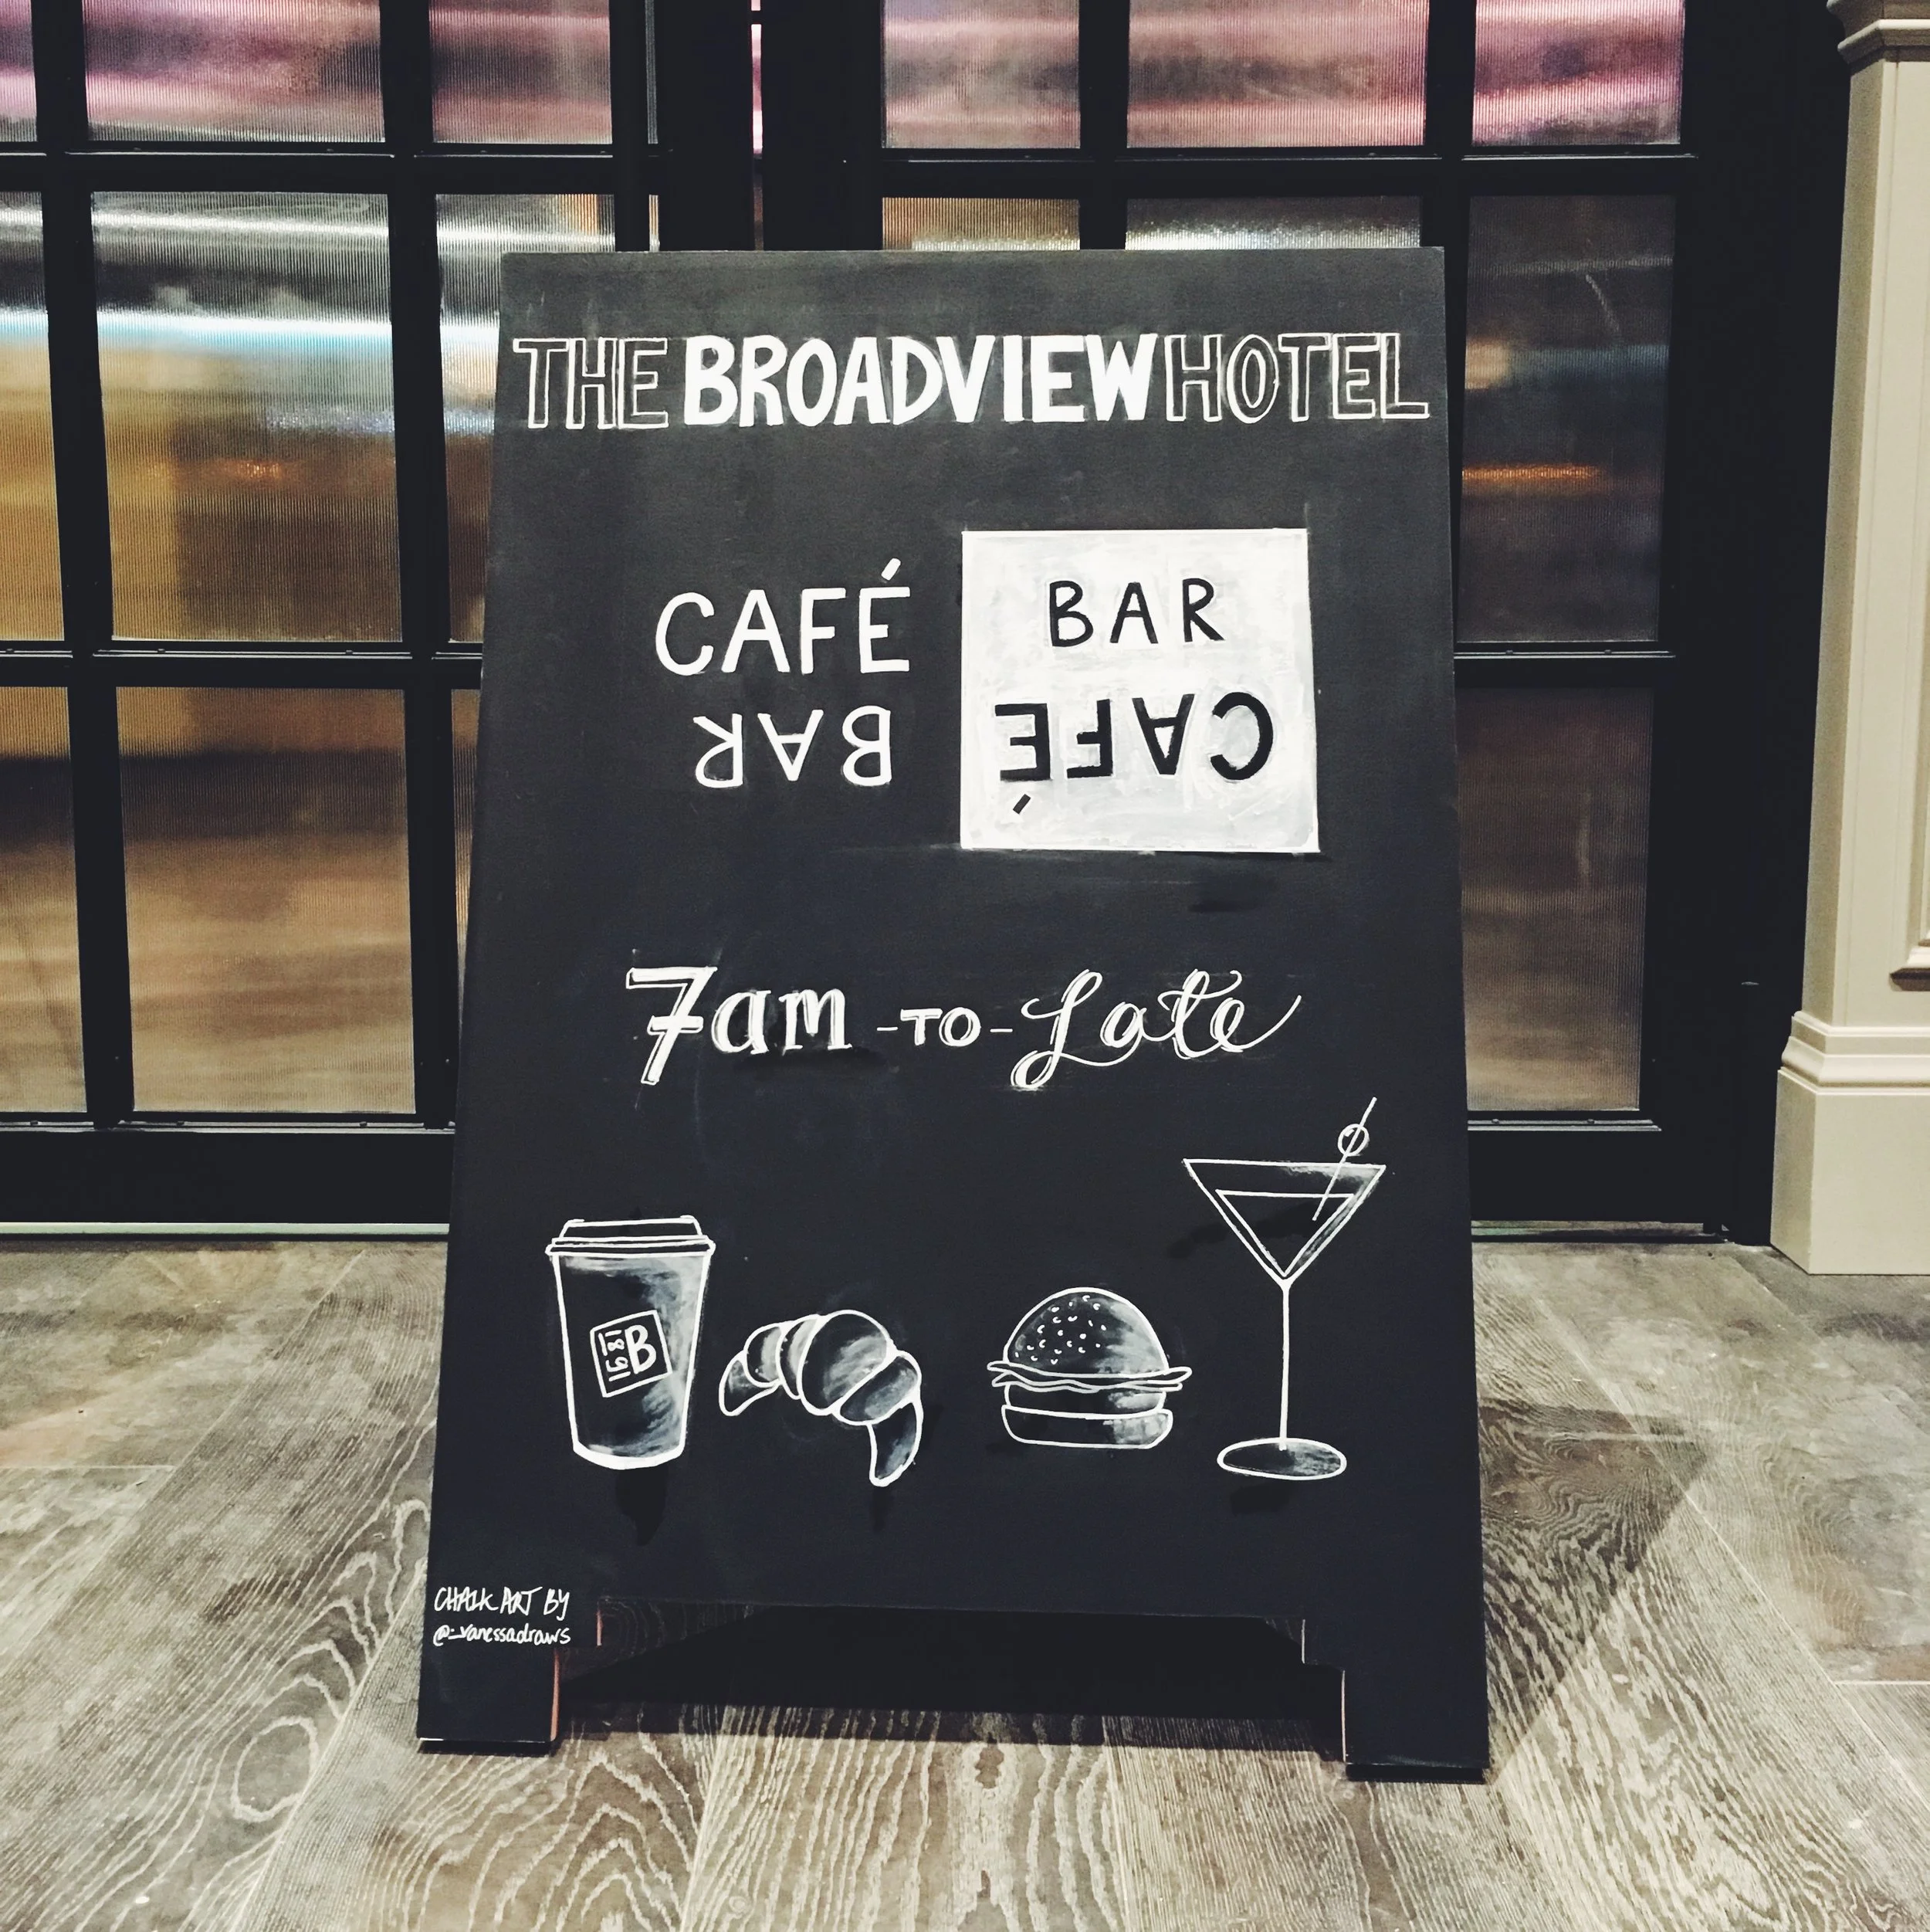 THE BROADVIEW HOTEL
CAFÉ
BAR
BAR
CAFÉ
7am -TO- Late
1891
B
CHALK ART BY
@_vanessadraws